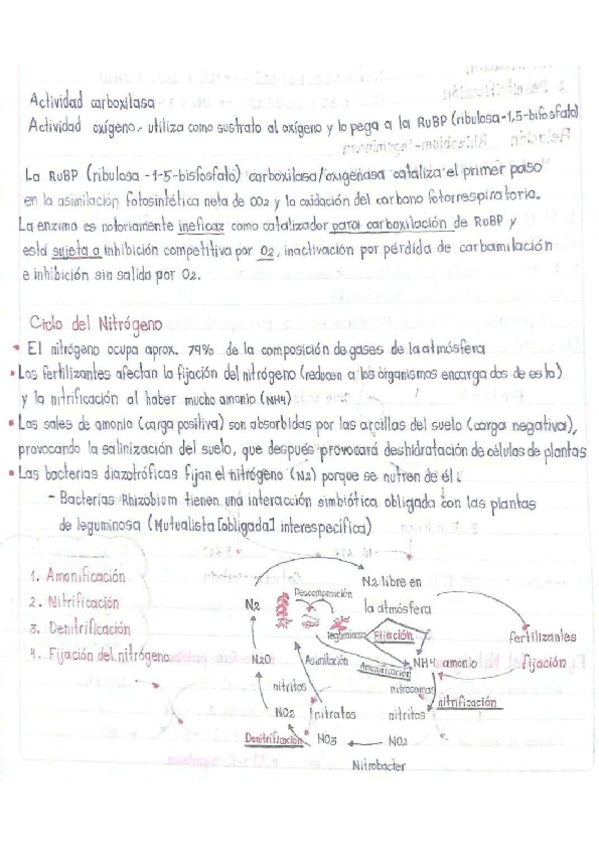 Actividad carboxilasa
Actividad oxígeno.- utiliza como sustrato al oxígeno y lo pega a la RuBP (ribulosa-1,5-bifosfato)
La RuBP (ribulosa -1-5-bisfosfato) carboxilasa/oxigenasa cataliza el primer paso
en la asimilación fotosintética neta de CO2 y la oxidación del carbono fotorrespiratorio.
La enzima es notoriamente ineficaz como catalizador para carboxilación de RuBP y
está sujeta a inhibición competitiva por O2, inactivación por pérdida de carbamilación
e inhibición sin salida por O2.
Ciclo del Nitrógeno
• El nitrógeno ocupa aprox. 79% de la composición de gases de la atmósfera
• Los fertilizantes afectan la fijación del nitrógeno (reducen a los organismos encargados de esto)
y la nitrificación al haber mucho amonio (NH4)
• Las sales de amonio (carga positiva) son absorbidas por las arcillas del suelo (carga negativa),
provocando la salinización del suelo, que después provocará deshidratación de células de plantas
• Las bacterias diazotróficas fijan el nitrógeno (N2) porque se nutren de él:
- Bacterias Rhizobium tienen una interacción simbiótica obligada con las plantas
de leguminosa (Mutualista [obligada] interespecífica)
1. Amonificación
2. Nitrificación
3. Denitrificación
4. Fijación del nitrógeno
N2 libre en
la atmósfera
Descomposición
N2
leguminosa
Fijación
fertilizantes
fijación
N2O
Asimilación
Amonificación
NH4 amonio
nitritos
nitrosomas
nitrificación
NO2
nitratos
nitritos
Denitrificación
NO3
NO2
Nitrobacter